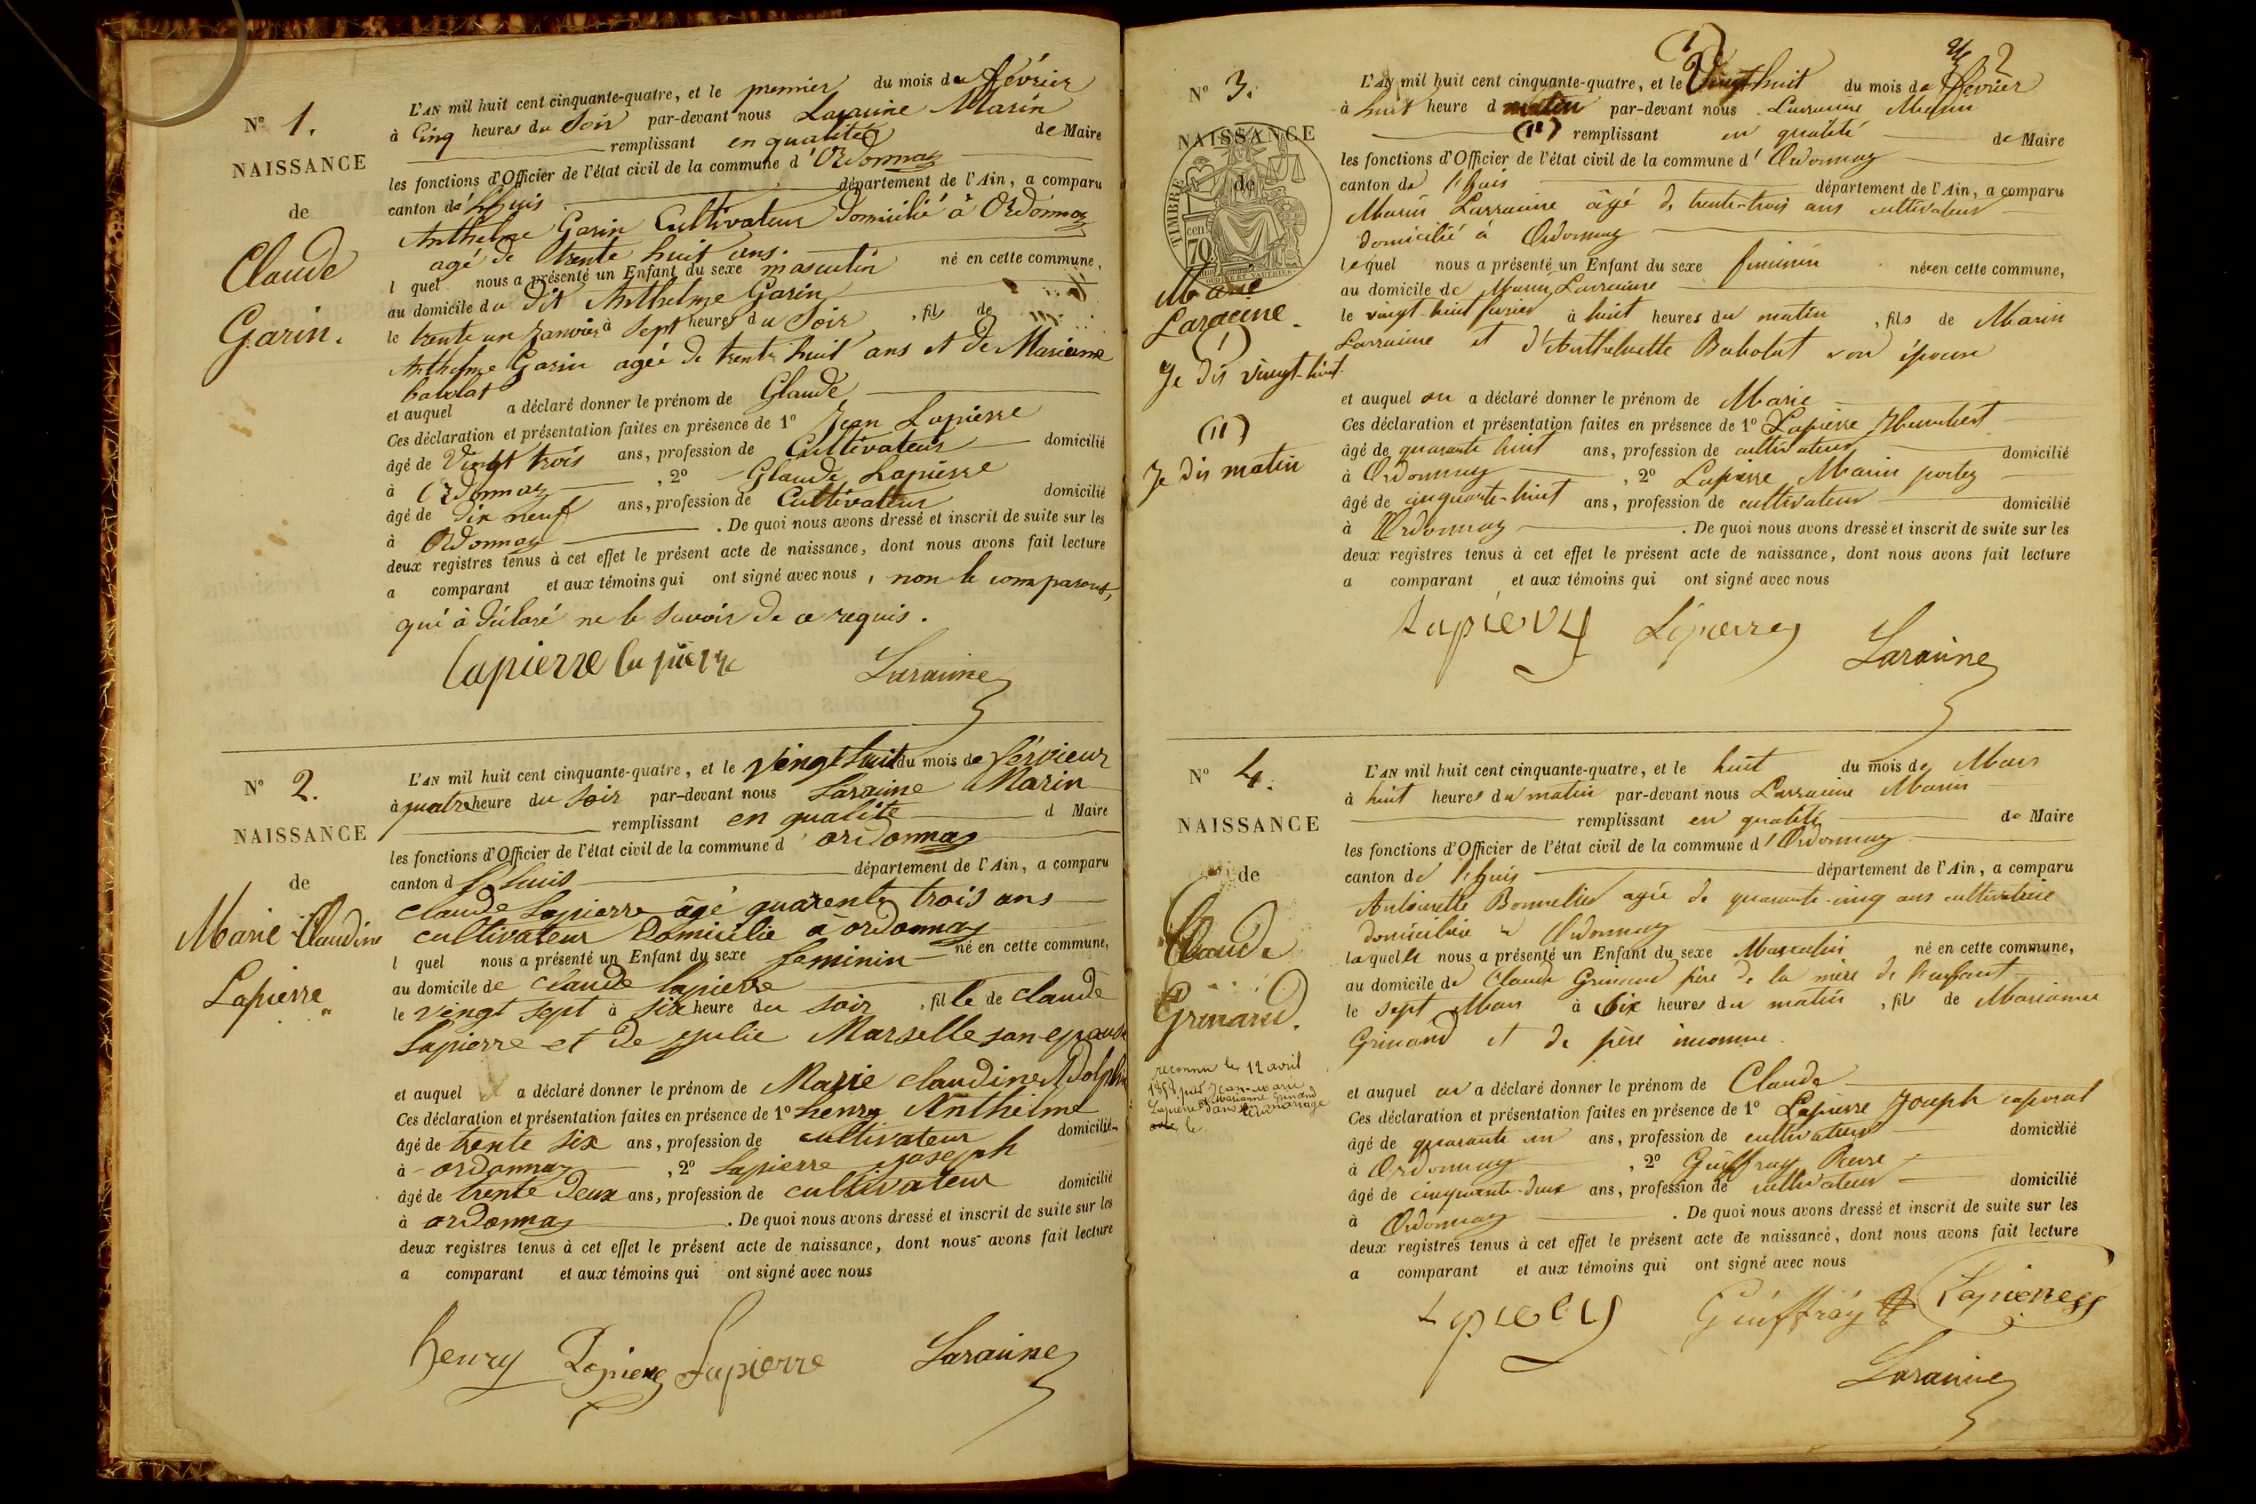 N° 1.
NAISSANCE
de
Claude
Garin.
L'AN mil huit cent cinquante-quatre, et le premier du mois de février
à Cinq heures du Soir par-devant nous Laraune Marin
remplissant en qualité de Maire
les fonctions d'Officier de l'état civil de la commune d'Ordonnaz
canton de l'huis département de l'Ain, a comparu
Anthelme Garin Cultivateur Domicilié à Ordonnaz
agé de trente huit ans.
l quel nous a présenté un Enfant du sexe masculin né en cette commune,
au domicile du dit Anthelme Garin
le trente un Janvier à sept heures du Soir, fils de
Anthelme Garin agée de trente huit ans et de Marianne
babolat
et auquel a déclaré donner le prénom de Glaude
Ces déclaration et présentation faites en présence de 1° Jean Lapierre
âgé de Vingt trois ans, profession de Cultivateur domicilié
à Ordonnaz, 2° Glaude Lapierre
âgé de dix neuf ans, profession de Cultivateur domicilié
à Ordonnaz. De quoi nous avons dressé et inscrit de suite sur les
deux registres tenus à cet effet le présent acte de naissance, dont nous avons fait lecture
a comparant et aux témoins qui ont signé avec nous, non le comparant,
qui à déclaré ne le savoir de ce requis.
Lapierre lapierre Laraune
N° 2.
NAISSANCE
de
Marie Claudine
Lapierre
L'AN mil huit cent cinquante-quatre, et le vingt huit du mois de férvieur
à quatre heure du soir par-devant nous Laraune Marin
remplissant en qualité d Maire
les fonctions d'Officier de l'état civil de la commune d ordonnaz
canton d l'huis département de l'Ain, a comparu
claude Lapierre âgé quarente trois ans
cultivateur Domicilie à ordonnaz
l quel nous a présenté un Enfant du sexe feminin né en cette commune,
au domicile de claude lapierre
le vingt sept à six heure du soir, fil le de claude
Lapierre et de julie Marselle son epouse
et auquel a déclaré donner le prénom de Marie claudine Adolphi
Ces déclaration et présentation faites en présence de 1° henry Anthelme
âgé de trente six ans, profession de cultivateur domicilié
à ordonnaz, 2° Lapierre joseph
âgé de trente deux ans, profession de cultivateur domicilié
à ordonnaz. De quoi nous avons dressé et inscrit de suite sur les
deux registres tenus à cet effet le présent acte de naissance, dont nous avons fait lecture
a comparant et aux témoins qui ont signé avec nous
henry Lapierre Lapierre Laraune
2
N° 3.
NAISSANCE
de
TIMBRE
70
Marie
Laraune.
(I)
Je dis vingt-huit
(II)
Je dis matin
(I)
L'AN mil huit cent cinquante-quatre, et le Vingt huit du mois de février
à huit heure d matin par-devant nous Larraune Marin
(II) remplissant en qualité de Maire
les fonctions d'Officier de l'état civil de la commune d'Ordonnaz
canton de l'huis département de l'Ain, a comparu
Marin Larraune âgé de trente-trois ans cultivateur
domicilié à Ordonnaz
lequel nous a présenté un Enfant du sexe feminin née en cette commune,
au domicile de Marin Larraune
le vingt-huit fevrier à huit heures du matin, fils de Marin
Larraune et d'Anthelmette Babolat son épouse
et auquel on a déclaré donner le prénom de Marie
Ces déclaration et présentation faites en présence de 1° Lapierre Humbert
âgé de quarante huit ans, profession de cultivateur domicilié
à Ordonnaz, 2° Lapierre Marin
âgé de cinquante-huit ans, profession de cultivateur domicilié
à Ordonnaz. De quoi nous avons dressé et inscrit de suite sur les
deux registres tenus à cet effet le présent acte de naissance, dont nous avons fait lecture
a comparant et aux témoins qui ont signé avec nous
Lapierre Lapierre Laraune
N° 4.
NAISSANCE
de
Claude
Grinand.
reconnu le 12 avril
par Jean-Marie
Lapierre et Marianne Grinand
dans mariage
L'AN mil huit cent cinquante-quatre, et le huit du mois de Mars
à huit heures du matin par-devant nous Larraune Marin
remplissant en qualité de Maire
les fonctions d'Officier de l'état civil de la commune d'Ordonnaz
canton de l'huis département de l'Ain, a comparu
Antoinette agée de quarante-cinq ans cultivatrice
domiciliée à Ordonnaz
laquelle nous a présenté un Enfant du sexe Masculin né en cette commune,
au domicile de Claude Grinand père de la mère de l'enfant
le sept Mars à six heures du matin, fils de Marianne
Grinand et de père inconnu.
et auquel on a déclaré donner le prénom de Claude
Ces déclaration et présentation faites en présence de 1° Lapierre Joseph caporal
âgé de quarante un ans, profession de cultivateur domicilié
à Ordonnaz, 2° Guiffray Pierre
âgé de cinquante-deux ans, profession de cultivateur domicilié
à Ordonnaz. De quoi nous avons dressé et inscrit de suite sur les
deux registres tenus à cet effet le présent acte de naissance, dont nous avons fait lecture
a comparant et aux témoins qui ont signé avec nous
Guiffray Lapierre
Laraune